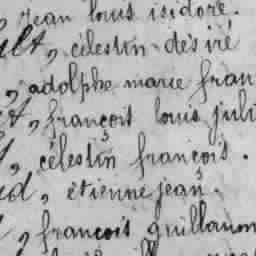 , jean louis isidore.
ult, célestin désiré
, adolphe marie fran
et, françois louis juli
t, célestin françois.
ud, étienne jean.
, françois guillaum